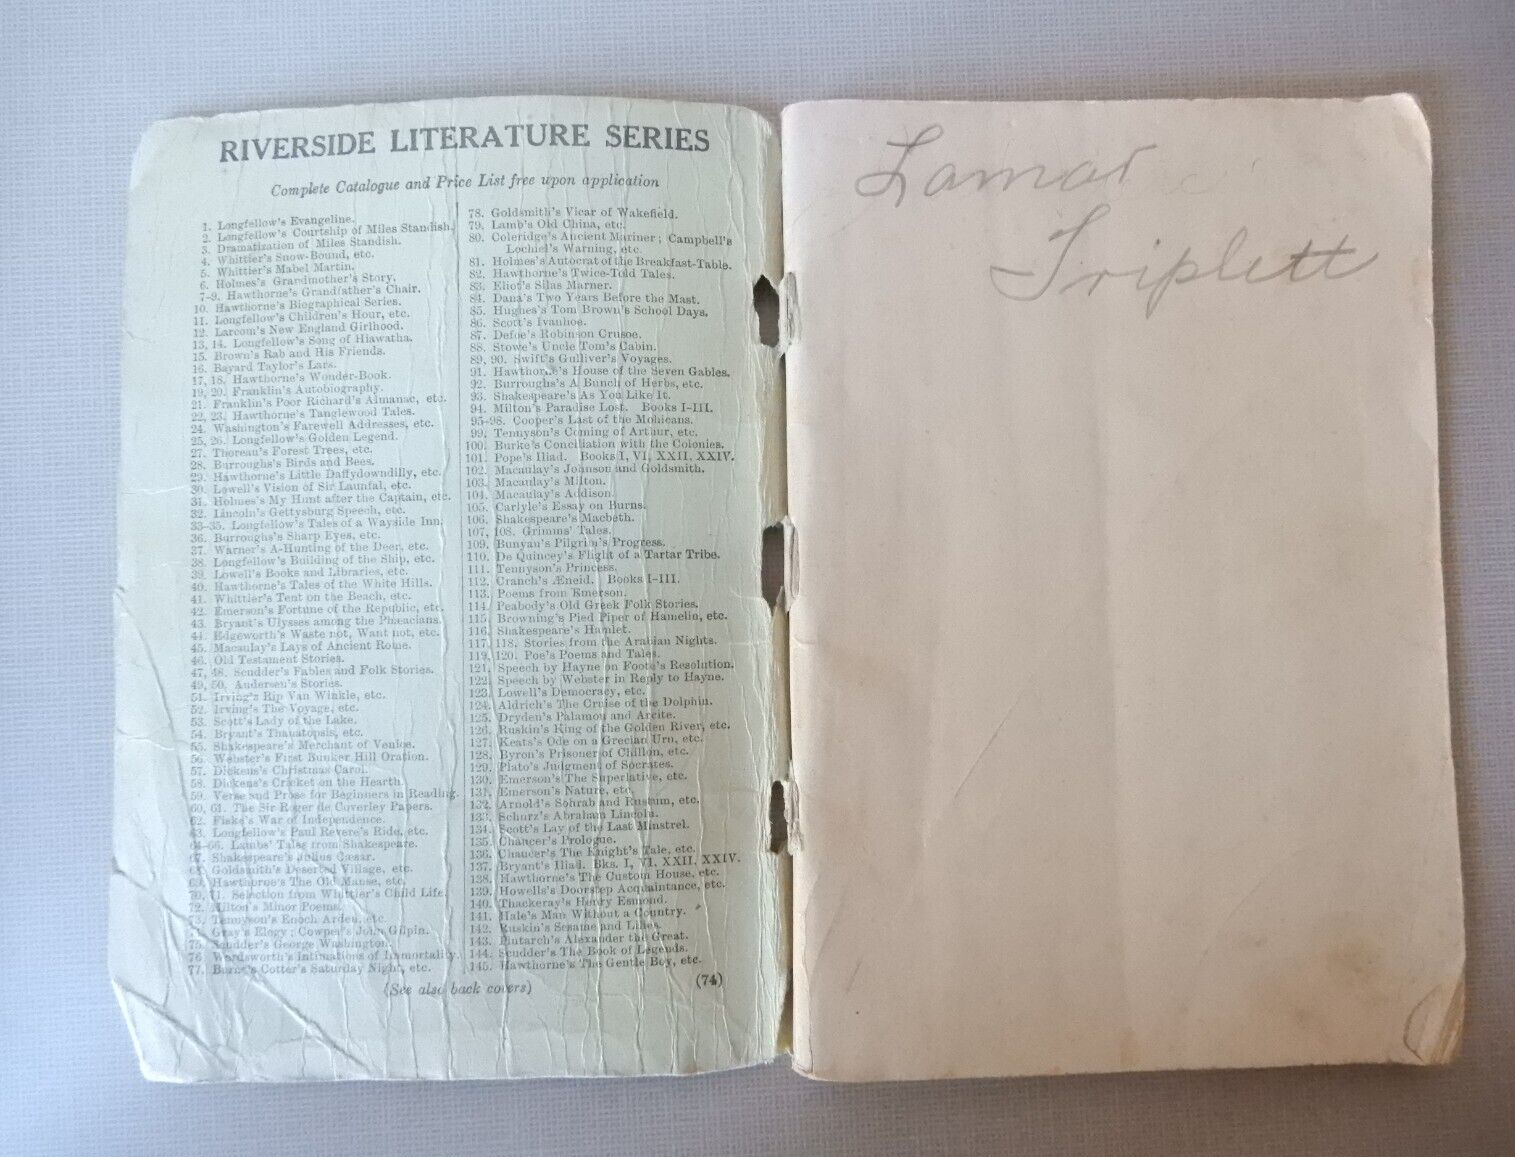 RIVERSIDE LITERATURE SERIES
Complete Catalogue and Price List free upon application
1. Longfellow's Evangeline.
2. Longfellow's Courtship of Miles Standish.
3. Dramatization of Miles Standish.
4. Whittier's Snow-Bound, etc.
5. Whittier's Mabel Martin.
6. Holmes's Grandmother's Story.
7-9. Hawthorne's Grandfather's Chair.
10. Hawthorne's Biographical Series.
11. Longfellow's Children's Hour, etc.
12. Larcom's New England Girlhood.
13, 14. Longfellow's Song of Hiawatha.
15. Brown's Rab and His Friends.
16. Bayard Taylor's Lars.
17, 18. Hawthorne's Wonder-Book.
19, 20. Franklin's Autobiography.
21. Franklin's Poor Richard's Almanac, etc.
22, 23. Hawthorne's Tanglewood Tales.
24. Washington's Farewell Addresses, etc.
25, 26. Longfellow's Golden Legend.
27. Thoreau's Forest Trees, etc.
28. Burroughs's Birds and Bees.
29. Hawthorne's Little Daffydowndilly, etc.
30. Lowell's Vision of Sir Launfal, etc.
31. Holmes's My Hunt after the Captain, etc.
32. Lincoln's Gettysburg Speech, etc.
33-35. Longfellow's Tales of a Wayside Inn.
36. Burroughs's Sharp Eyes, etc.
37. Warner's A-Hunting of the Deer, etc.
38. Longfellow's Building of the Ship, etc.
39. Lowell's Books and Libraries, etc.
40. Hawthorne's Tales of the White Hills.
41. Whittier's Tent on the Beach, etc.
42. Emerson's Fortune of the Republic, etc.
43. Bryant's Ulysses among the Phæacians.
44. Edgeworth's Waste not, Want not, etc.
45. Macaulay's Lays of Ancient Rome.
46. Old Testament Stories.
47, 48. Scudder's Fables and Folk Stories.
49, 50. Andersen's Stories.
51. Irving's Rip Van Winkle, etc.
52. Irving's The Voyage, etc.
53. Scott's Lady of the Lake.
54. Bryant's Thanatopsis, etc.
55. Shakespeare's Merchant of Venice.
56. Webster's First Bunker Hill Oration.
57. Dickens's Christmas Carol.
58. Dickens's Cricket on the Hearth.
59. Verse and Prose for Beginners in Reading.
60, 61. The Sir Roger de Coverley Papers.
62. Fiske's War of Independence.
63. Longfellow's Paul Revere's Ride, etc.
64-66. Lambs' Tales from Shakespeare.
67. Shakespeare's Julius Cæsar.
68. Goldsmith's Deserted Village, etc.
69. Hawthorne's The Old Manse, etc.
70, 71. Selection from Whittier's Child Life.
72. Milton's Minor Poems.
73. Tennyson's Enoch Arden, etc.
74. Gray's Elegy; Cowper's John Gilpin.
75. Scudder's George Washington.
76. Wordsworth's Intimations of Immortality.
77. Burns's Cotter's Saturday Night, etc.
78. Goldsmith's Vicar of Wakefield.
79. Lamb's Old China, etc.
80. Coleridge's Ancient Mariner; Campbell's
Lochiel's Warning, etc.
81. Holmes's Autocrat of the Breakfast-Table.
82. Hawthorne's Twice-Told Tales.
83. Eliot's Silas Marner.
84. Dana's Two Years Before the Mast.
85. Hughes's Tom Brown's School Days.
86. Scott's Ivanhoe.
87. Defoe's Robinson Crusoe.
88. Stowe's Uncle Tom's Cabin.
89, 90. Swift's Gulliver's Voyages.
91. Hawthorne's House of the Seven Gables.
92. Burroughs's A Bunch of Herbs, etc.
93. Shakespeare's As You Like It.
94. Milton's Paradise Lost. Books I-III.
95-98. Cooper's Last of the Mohicans.
99. Tennyson's Coming of Arthur, etc.
100. Burke's Conciliation with the Colonies.
101. Pope's Iliad. Books I, VI, XXII, XXIV.
102. Macaulay's Johnson and Goldsmith.
103. Macaulay's Milton.
104. Macaulay's Addison.
105. Carlyle's Essay on Burns.
106. Shakespeare's Macbeth.
107, 108. Grimms' Tales.
109. Bunyan's Pilgrim's Progress.
110. De Quincey's Flight of a Tartar Tribe.
111. Tennyson's Princess.
112. Cranch's Æneid. Books I-III.
113. Poems from Emerson.
114. Peabody's Old Greek Folk Stories.
115. Browning's Pied Piper of Hamelin, etc.
116. Shakespeare's Hamlet.
117, 118. Stories from the Arabian Nights.
119, 120. Poe's Poems and Tales.
121. Speech by Hayne on Foote's Resolution.
122. Speech by Webster in Reply to Hayne.
123. Lowell's Democracy, etc.
124. Aldrich's The Cruise of the Dolphin.
125. Dryden's Palamon and Arcite.
126. Ruskin's King of the Golden River, etc.
127. Keats's Ode on a Grecian Urn, etc.
128. Byron's Prisoner of Chillon, etc.
129. Plato's Judgment of Socrates.
130. Emerson's The Superlative, etc.
131. Emerson's Nature, etc.
132. Arnold's Sohrab and Rustum, etc.
133. Schurz's Abraham Lincoln.
134. Scott's Lay of the Last Minstrel.
135. Chaucer's Prologue.
136. Chaucer's The Knight's Tale, etc.
137. Bryant's Iliad. Bks. I, VI, XXII, XXIV.
138. Hawthorne's The Custom House, etc.
139. Howells's Doorstep Acquaintance, etc.
140. Thackeray's Henry Esmond.
141. Hale's Man Without a Country.
142. Ruskin's Sesame and Lilies.
143. Plutarch's Alexander the Great.
144. Scudder's The Book of Legends.
145. Hawthorne's The Gentle Boy, etc.
(See also back covers)
(74)
Lamar
Triplett